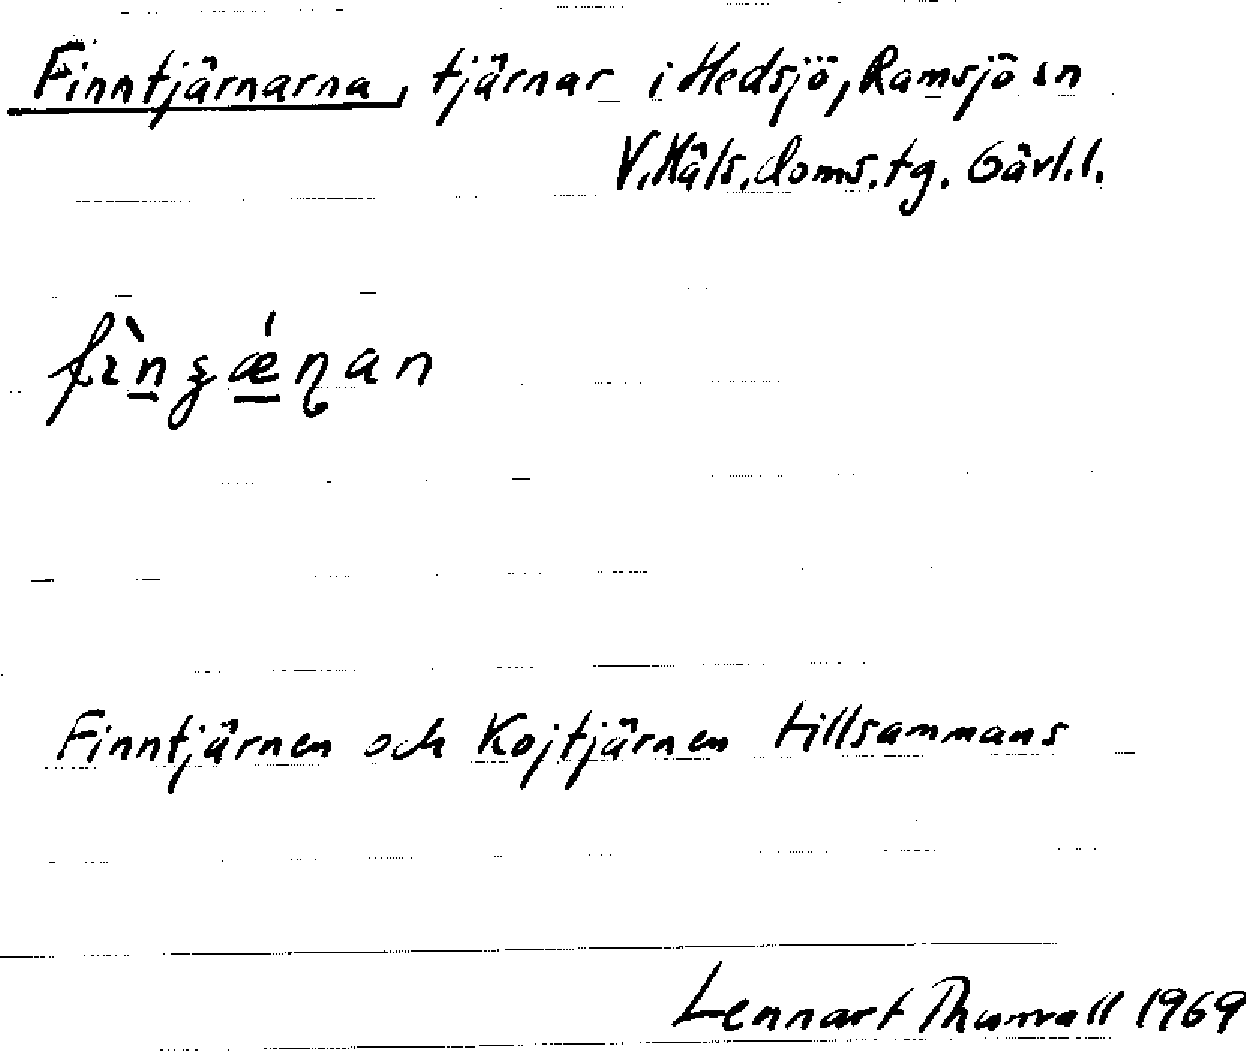 Finntjärnarna, tjärnar i Hedsjö, Ramsjö sn
V. Häls. doms. tg. Gävl. l.
fìnʒǽɳan
Finntjärnen och Kojtjärnen tillsammans
Lennart Thunvall 1969